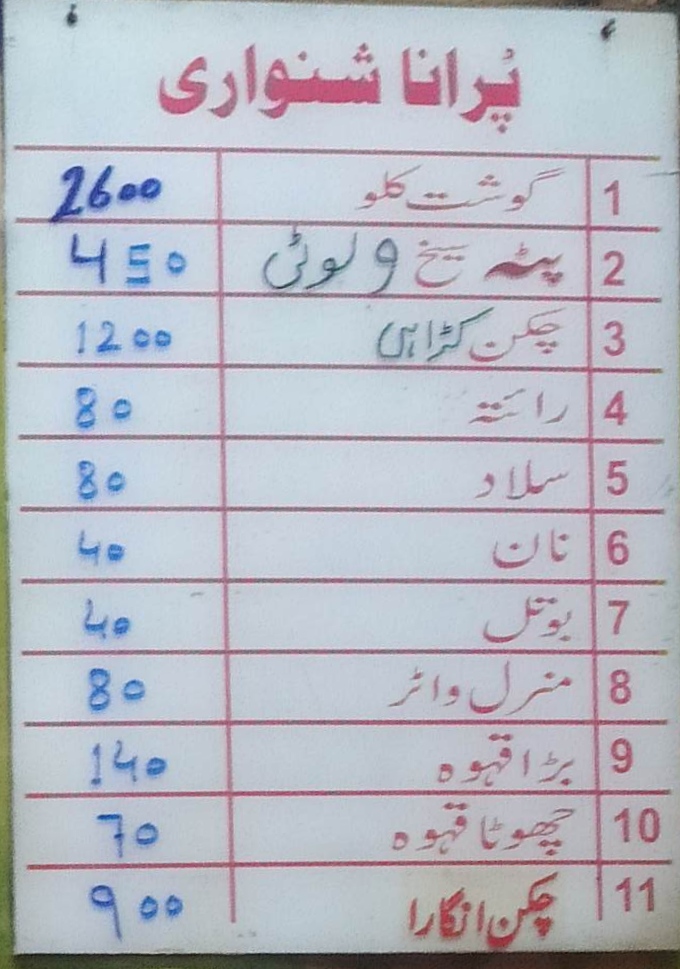 پُرانا شنواری
1 گوشت کلو 2600
2 پٹہ سیخ و لوٹی 450
3 چکن کڑاہی 1200
4 رائتہ 80
5 سلاد 80
6 نان 40
7 بوتل 40
8 منرل واٹر 80
9 بڑا قہوہ 140
10 چھوٹا قہوہ 70
11 چکن انگارا 900